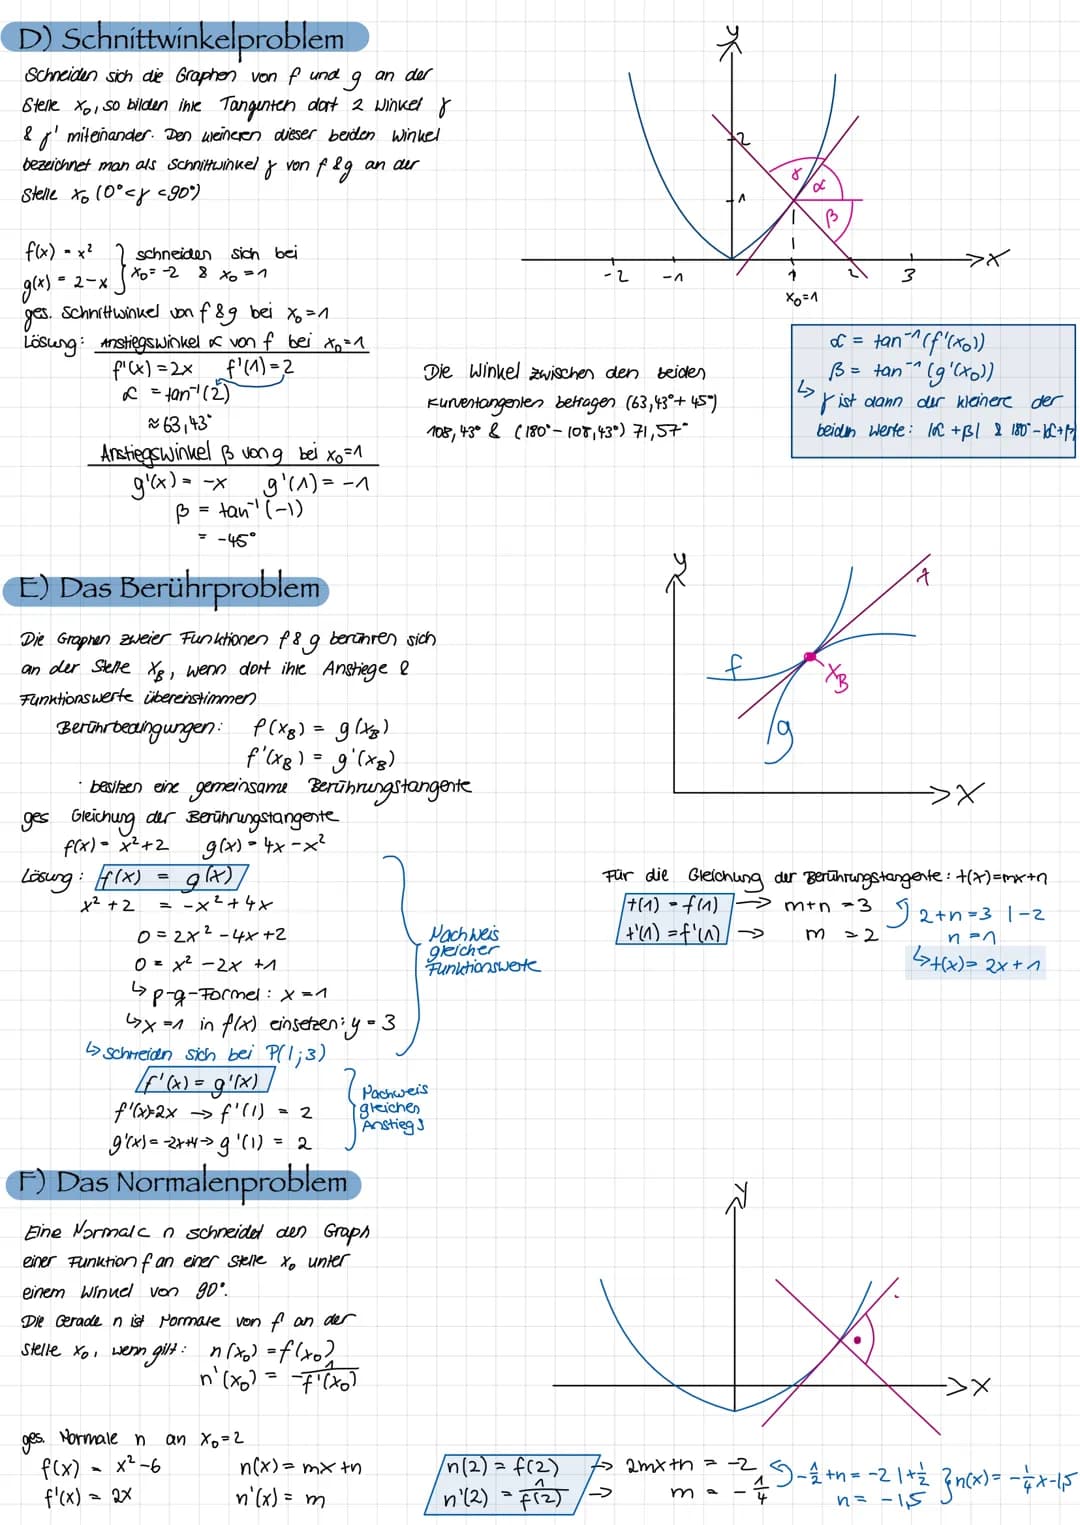 D) Schnittwinkelproblem
Schneiden sich die Graphen von f und g an der
Stelle x₀, so bilden ihre Tangenten dort 2 Winkel γ
& γ' miteinander. Den kleineren dieser beiden Winkel
bezeichnet man als Schnittwinkel γ von f & g an der
Stelle x₀ (0°<γ<90°)
f(x) = x² } schneiden sich bei
g(x) = 2-x } x₀ = -2 & x₀ = 1
ges. Schnittwinkel von f & g bei x₀ = 1
Lösung: Anstiegswinkel α von f bei x₀=1
f'(x) = 2x f'(1) = 2
α = tan⁻¹(2)
≈ 63,43°
Anstiegswinkel β von g bei x₀=1
g'(x) = -x g'(1) = -1
β = tan⁻¹(-1)
= -45°
Die Winkel zwischen den beiden
Kurventangenten betragen (63,43° + 45°)
108,43° & (180° - 108,43°) 71,57°
y
2
1
γ
α
β
-2 -1 1 2 3 x
x₀=1
α = tan⁻¹(f'(x₀))
β = tan⁻¹(g'(x₀))
↳ γ ist dann der kleinere der
beiden Werte: |α+β| & 180°-|α+β|
E) Das Berührproblem
Die Graphen zweier Funktionen f & g berühren sich
an der Stelle x_B, wenn dort ihre Anstiege &
Funktionswerte übereinstimmen
Berührbedingungen: f(x_B) = g(x_B)
f'(x_B) = g'(x_B)
· besitzen eine gemeinsame Berührungstangente
ges Gleichung der Berührungstangente
f(x) = x²+2 g(x) = 4x-x²
Lösung: f(x) = g(x)
x²+2 = -x²+4x
0 = 2x²-4x+2
0 = x²-2x+1
↳ p-q-Formel: x = 1
↳ x = 1 in f(x) einsetzen: y = 3
↳ schneiden sich bei P(1;3)
Nachweis
gleicher
Funktionswerte
f'(x) = g'(x)
f'(x)=2x → f'(1) = 2
g'(x) = -2x+4 → g'(1) = 2
Nachweis
gleichen
Anstiegs
y
t
f
x_B
g
x
Für die Gleichung der Berührungstangente: t(x)=mx+n
t(1) = f(1) → m+n = 3
t'(1) = f'(1) → m = 2
2+n=3 |-2
n = 1
↳ t(x) = 2x+1
F) Das Normalenproblem
Eine Normale n schneidet den Graph
einer Funktion f an einer Stelle x₀ unter
einem Winkel von 90°.
Die Gerade n ist Normale von f an der
Stelle x₀, wenn gilt: n(x₀) = f(x₀)
n'(x₀) = -1/f'(x₀)
y
x
ges. Normale n an x₀=2
f(x) = x²-6 n(x) = mx+n
f'(x) = 2x n'(x) = m
n(2) = f(2) → 2mx+n = -2
n'(2) = 1/f(2) → m = -1/4
-1/2+n = -2 |+1/2
n = -1,5
} n(x) = -1/4x-1,5